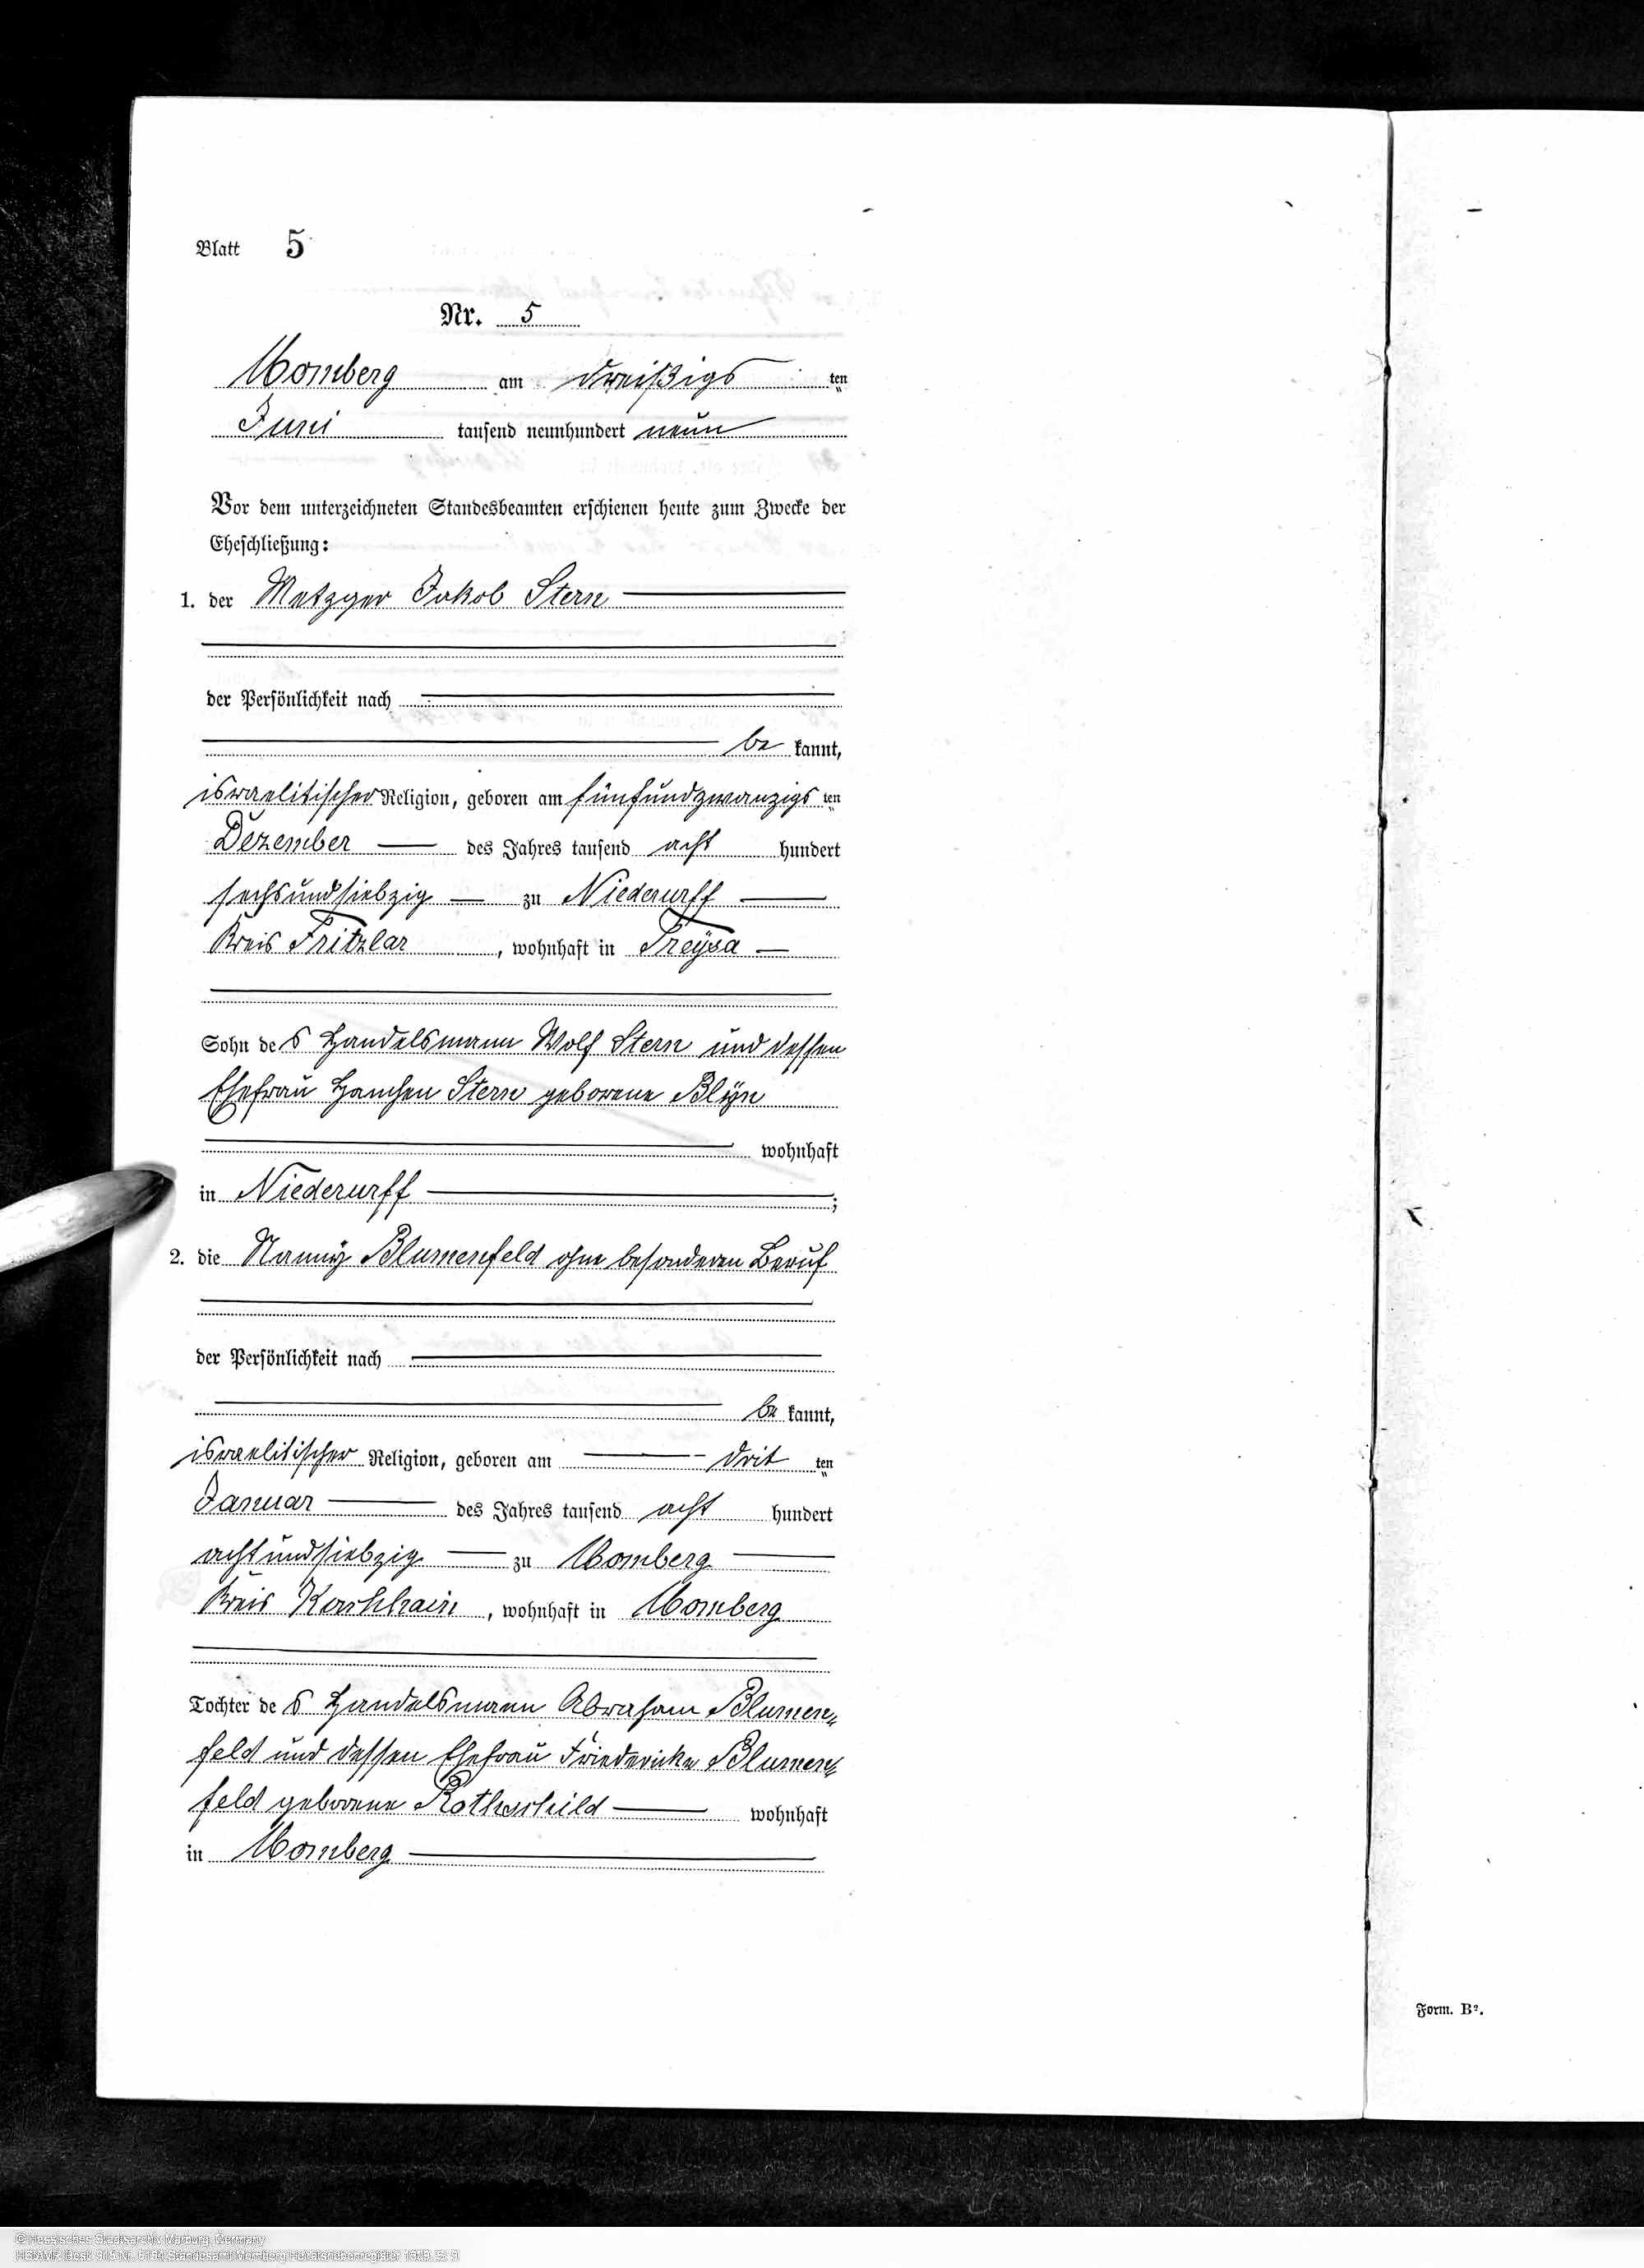 Blatt 5
Nr. 5
Momberg am dreißigs ten
Juni tausend neunhundert neun
Vor dem unterzeichneten Standesbeamten erschienen heute zum Zwecke der
Eheschließung:
1. der Metzger Jakob Stern
der Persönlichkeit nach
be kannt,
israelitischer Religion, geboren am fünfundzwanzigs ten
Dezember des Jahres tausend acht hundert
sechsundsiebzig zu Niederurff
Kreis Fritzlar, wohnhaft in Treysa
Sohn des Handelsmann Wolf Stern und dessen
Ehefrau Hanchen Stern geborene Blÿn
wohnhaft
in Niederurff;
2. die Nanny Blumenfeld ohne besonderen Beruf
der Persönlichkeit nach
be kannt,
israelitischer Religion, geboren am drit ten
Januar des Jahres tausend acht hundert
achtundsiebzig zu Momberg
Kreis Kirchhain, wohnhaft in Momberg
Tochter des Handelsmann Abraham Blumen„
feld und dessen Ehefrau Friedericke Blumen„
feld geborene Rothschild wohnhaft
in Momberg
Form. B².
© Hessisches Staatsarchiv Marburg, Germany